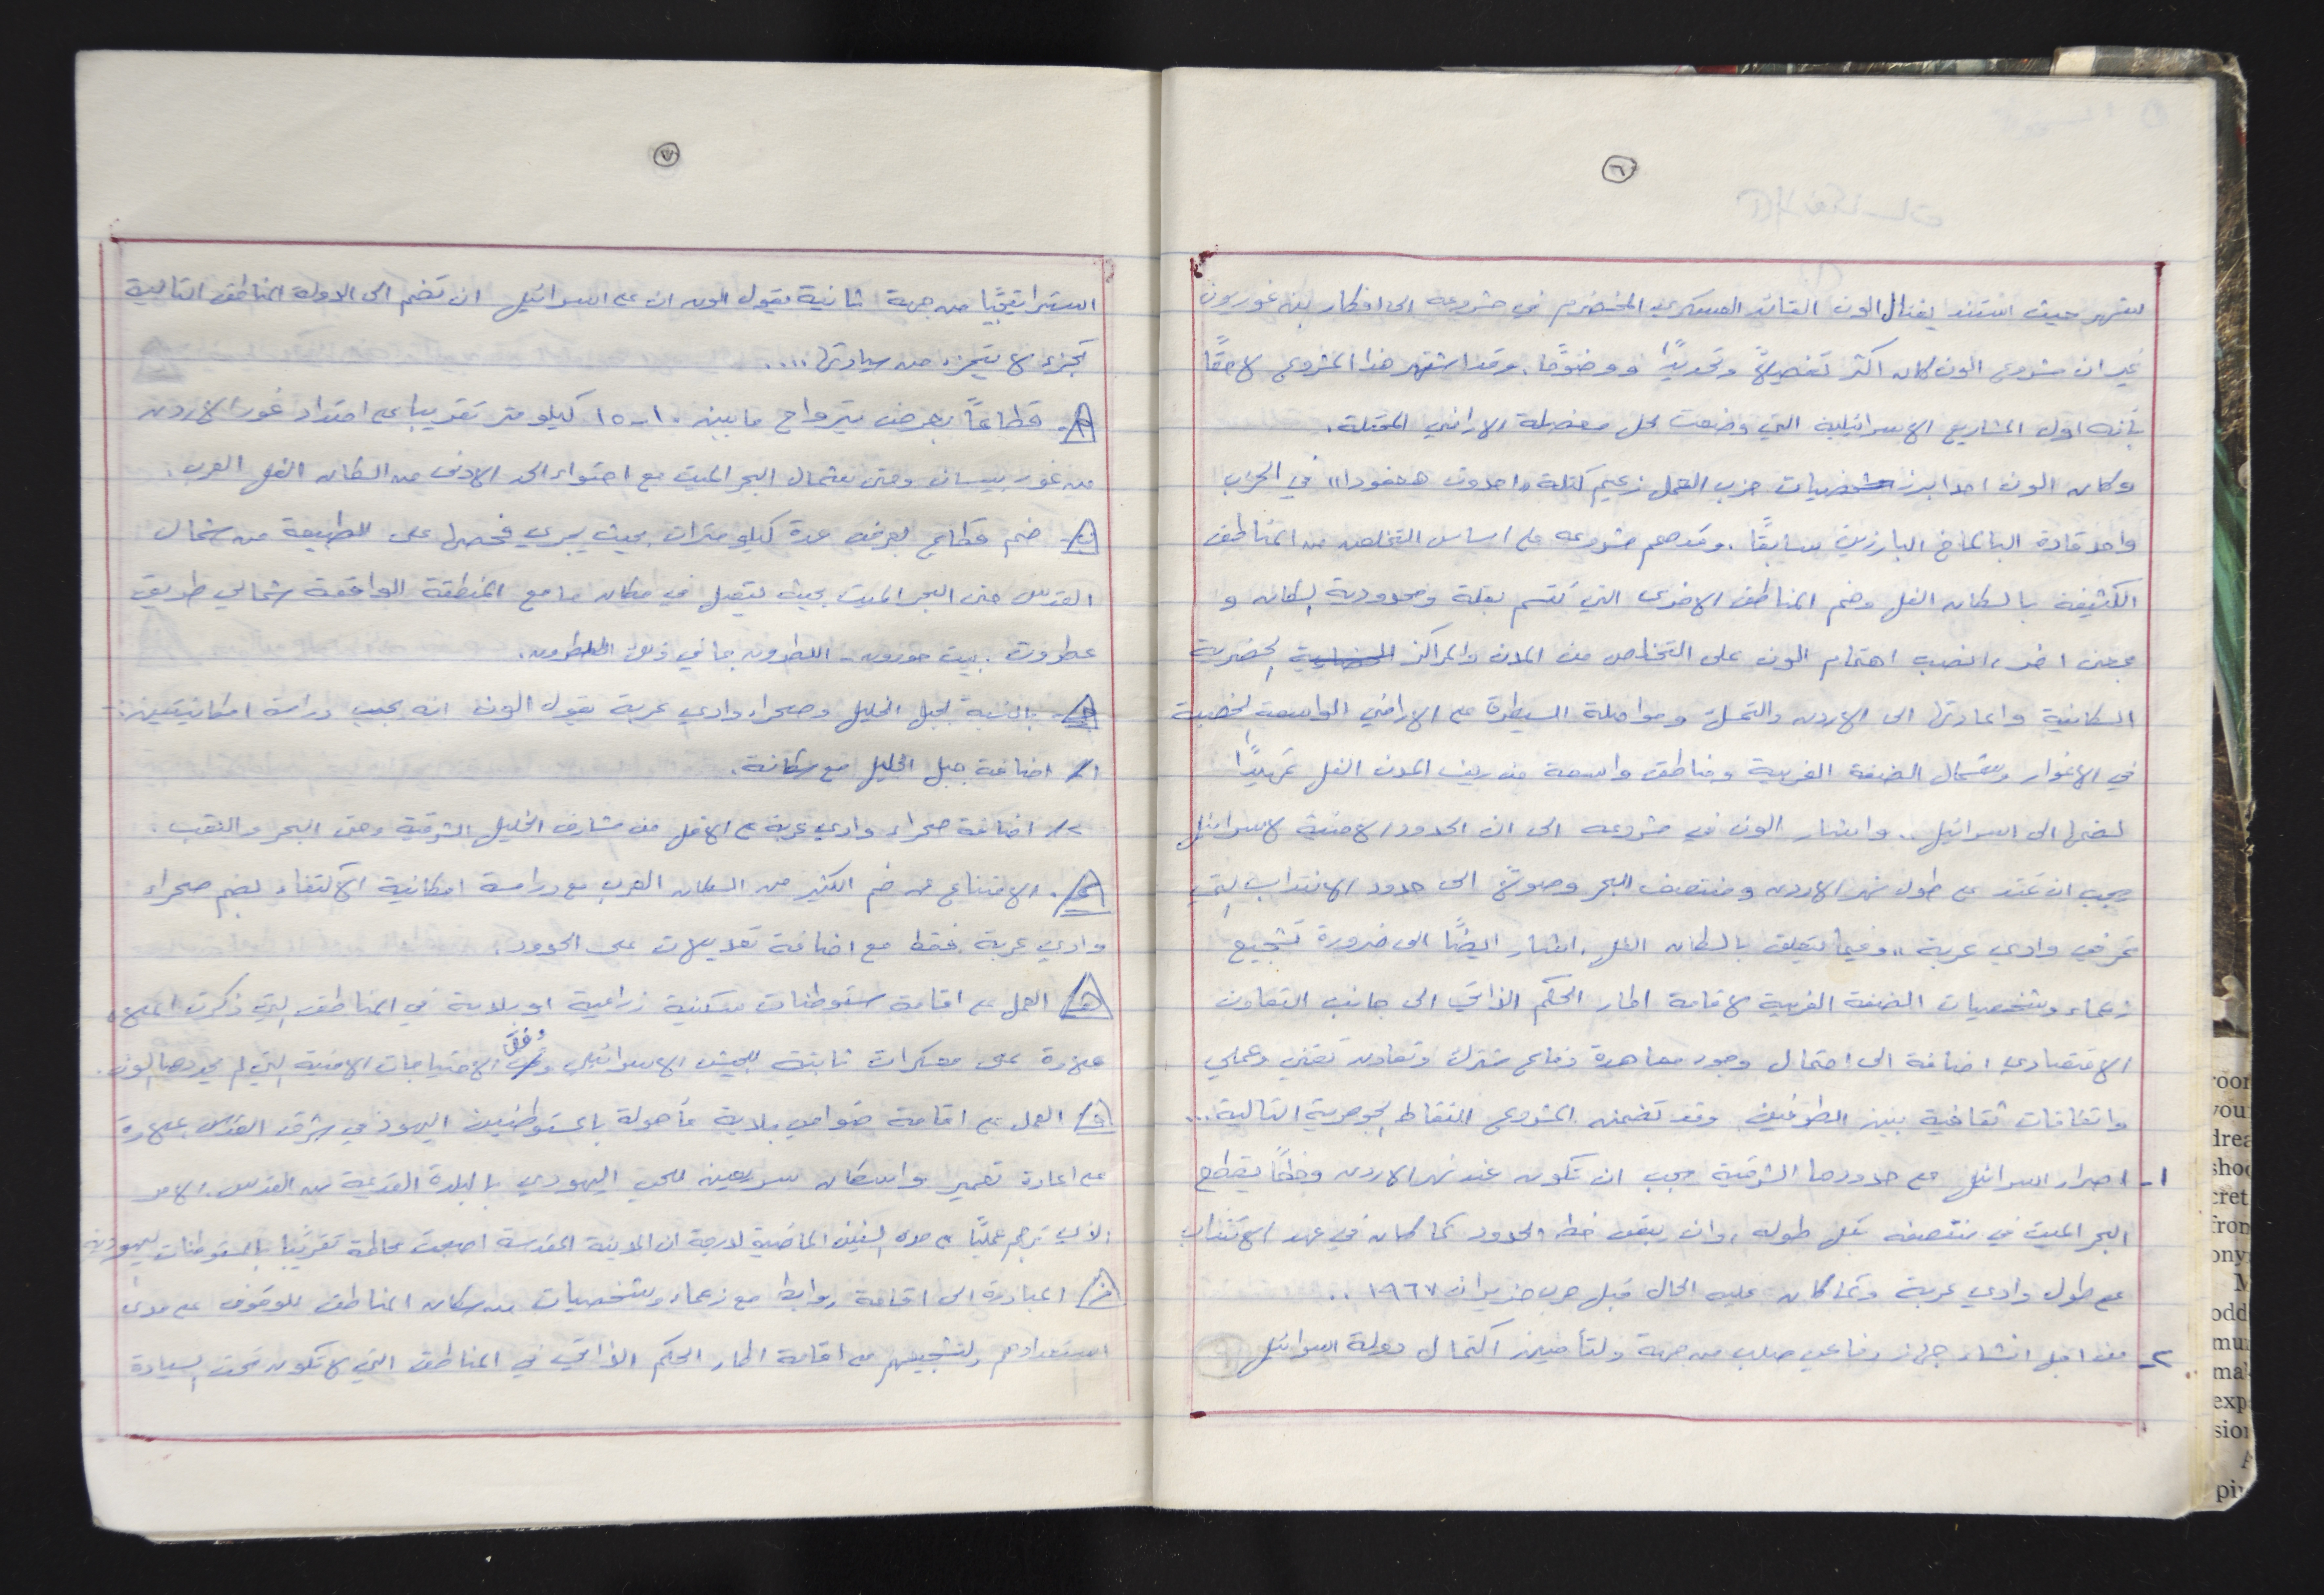 ٦
لشهر حيث استند يغئال الون القائد العسكري المخضرم في مشروعه الى افكار بن غوريون
غير ان مشروع الون كان اكثر تفصيلاً وتحديدًا ووضوحًا. وقد اشتهر هذا المشروع لاحقًا
بأنه اول المشاريع الاسرائيلية التي وضعت لحل معضلة الاراضي المحتلة.
وكان الون احد ابرز شخصيات حزب العمل زعيم كتلة "احدوت هعفودا" في الحزب
واحد قادة البالماخ البارزين سابقًا. وقد صمم مشروعه على اساس التخلص من المناطق
الكثيفة بالسكان الفل وضم المناطق الاخرى التي تتسم بقلة ومحدودية السكان و
بمعنى اخر، انصب اهتمام الون على التخلص من المدن والمراكز الحضرية
السكانية واعادتها الى الاردن والتمسك ومواصلة السيطرة على الاراضي الواسعة الخصبة
في الاغوار وشمال الضفة الغربية ومناطق واسعة من ريف المدن الفل تمهيدًا
لضمها الى اسرائيل.. واشار الون في مشروعه الى ان الحدود الامنية لاسرائيل
يجب ان تمتد على طول نهر الاردن ومنتصف البحر وصولاً الى حدود الانتداب التي
تمر في وادي عربة "وفيما يتعلق بالسكان الفل. اشار ايضًا الى ضرورة تشجيع
زعماء وشخصيات الضفة الغربية لاقامة اطار الحكم الذاتي الى جانب التعاون
الاقتصادي اضافة الى احتمال وجود معاهدة دفاع مشترك وتعاون تقني وعملي
واتفاقات ثقافية بين الطرفين وقد تضمن المشروع النقاط الجوهرية التالية...
١- اصرار اسرائيل على حدودها الشرقية يجب ان تكون عند نهر الاردن وخطًا يقطع
البحر الميت في منتصفه بكل طوله، وان يبقى خط الحدود كما كان في عهد الانتداب
على طول وادي عربة وكما كان عليه الحال قبل حرب حزيران ١٩٦٧..
٢- من اجل انشاء جهاز دفاعي صلب من جهة ولتأمين اكتمال دولة اسرائيل
٧
استراتيجيًا من جهة ثانية يقول الون ان على اسرائيل ان تضم الى الدولة المناطق التالية
كجزء لا يتجزء من سيادتها....
أ- قطاعًا بعرض يترواح ما بين ١٠-١٥ كيلو متر تقريبا على امتداد غور الاردن
من غور بيسان وحتى شمال البحر الميت مع احتواء الحد الادنى من السكان الفل العرب.
ب- ضم قطاع بعرض عدة كيلو مترات بحيث يجري فحصها على الطبيعة من شمال
القدس حتى البحر الميت بحيث يتصل في مكان ما مع المنطقة الواقعة شمالي طريق
عطروت. بيت حورون - اللطرون بما في ذلك اللطرون.
ج- بالنسبة لجبل الخليل وصحراء وادي عربة يقول الون انه يجب دراسة امكانيتين:-
١/ اضافة جبل الخليل مع سكانة.
٢/ اضافة صحراء وادي عربة على الاقل من مشارف الخليل الشرقية وحتى البحر والنقب.
د/. الامتناع عن ضم الكثير من السكان العرب مع دراسة امكانية الاكتفاء بضم صحراء
وادي عربة فقط مع اضافة تعديلات على الحدود.
هـ/ العمل على اقامة ستوطنات سكنية زراعية او بلدية في المناطق التي ذكرت اعلاه،
علاوة على معسكرات ثابتة للجيش الاسرائيلي وفقًا الاحتياجات الامنية التي لم يحددها الون.
و/ العمل على اقامة ضواحي بلدية مأهولة بالمستوطنين اليهود في شرق القدس علاوة
على اعادة تعمير واسكان سريعين للحي اليهودي بالبلدة القديمة من القدس. الامر
الذي ترجم عمليًا على مدى السنين الماضية لدرجة ان المدينة المقدسة اصبحت محاطة تقريبًا بالمستوطنات اليهودية
ز/ المبادرة الى اقامة روابط مع زعماء وشخصيات من سكان المناطق للوقوف على مدى
استعدادهم ولتشجيعهم على اقامة اطار الحكم الذاتي في المناطق التي لا تكون تحت السيادة